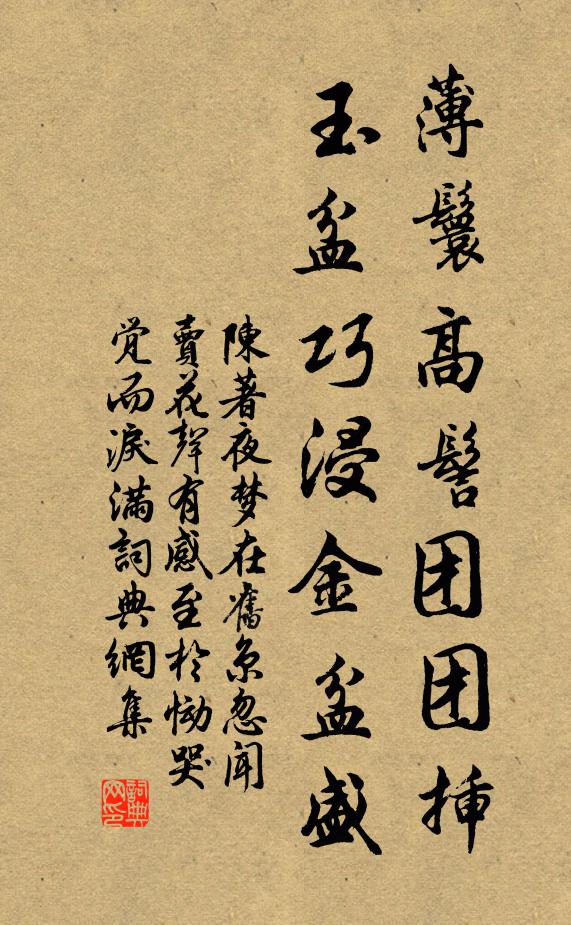 薄鬟高髻团团插
玉盆巧浸金盆盛
陳著夜梦在舊京忽聞
賣花聲有感至於恸哭
觉而淚满詞典網集
詞典网印